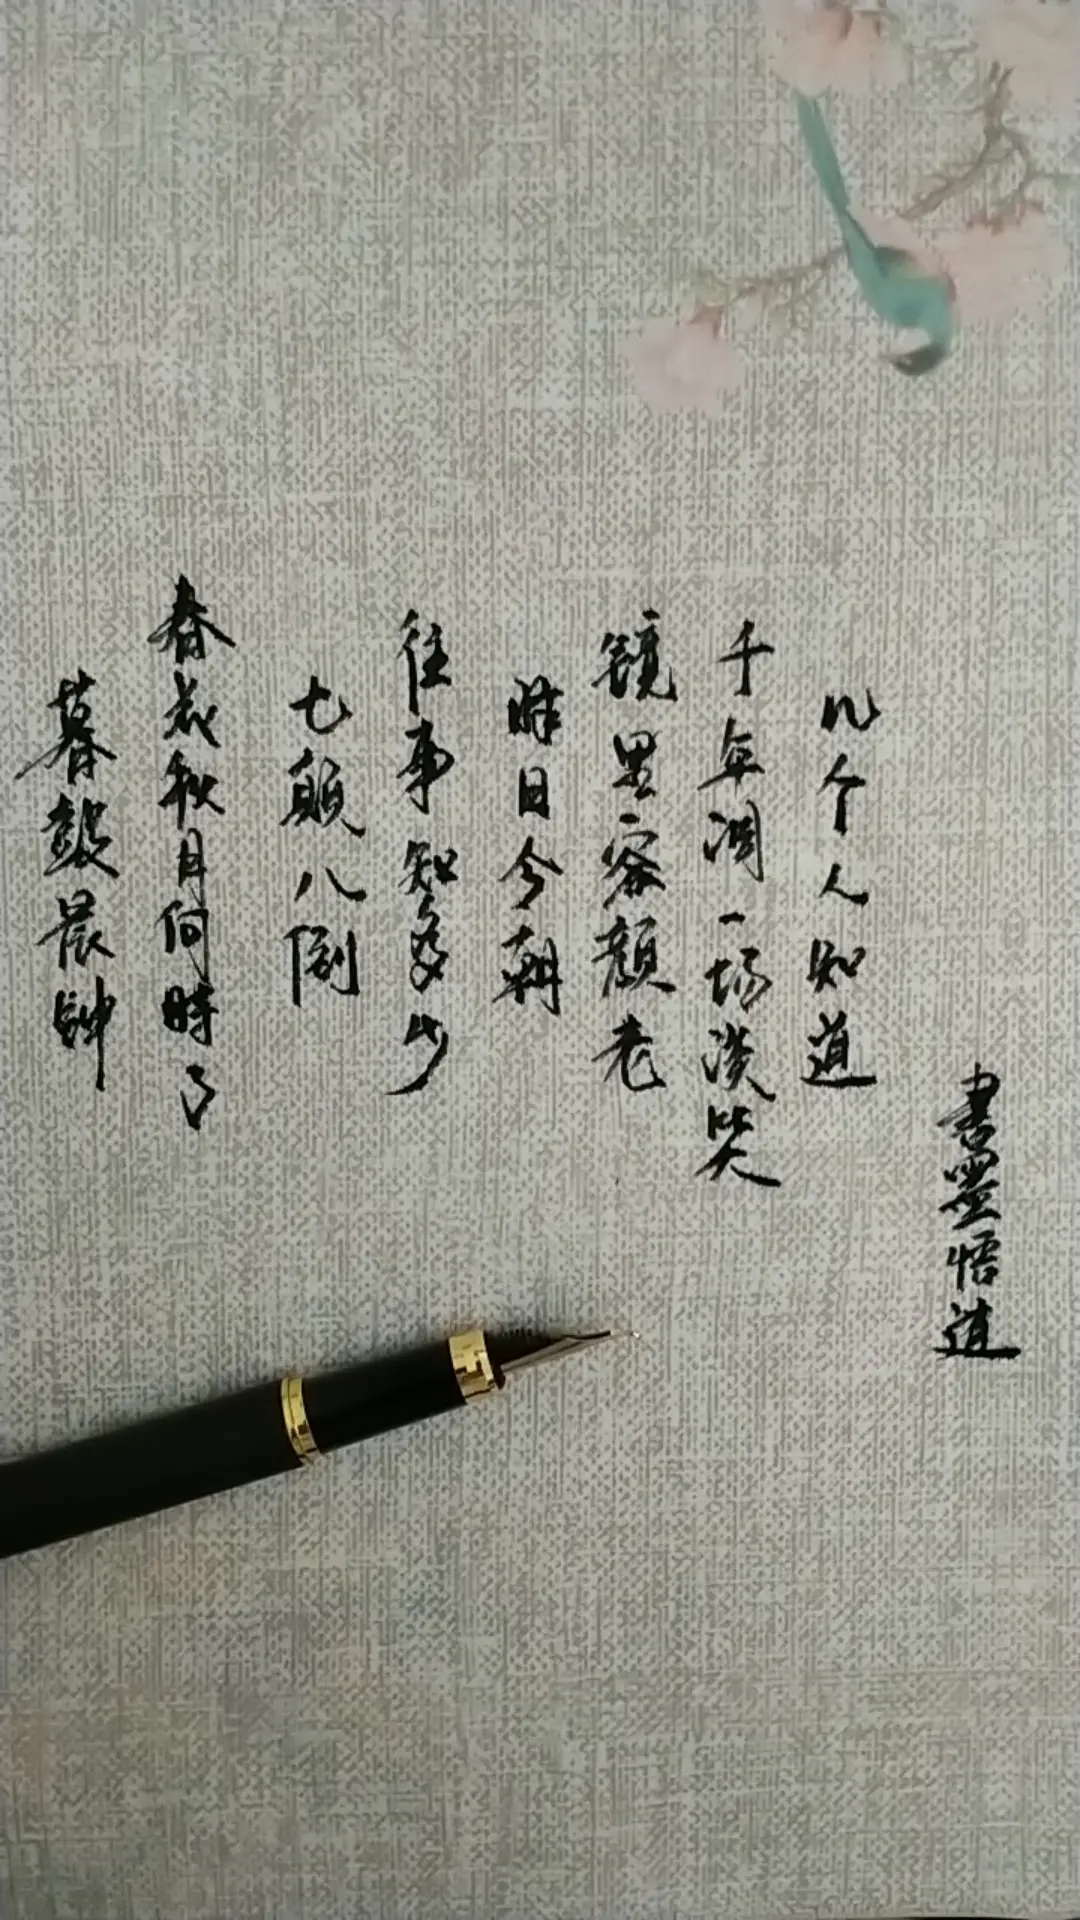 暮鼓晨钟
春花秋月何時了
七颠八倒
往事知多少
昨日今朝
镜里容颜老
千年调一场谈笑
几个人知道
書墨悟道